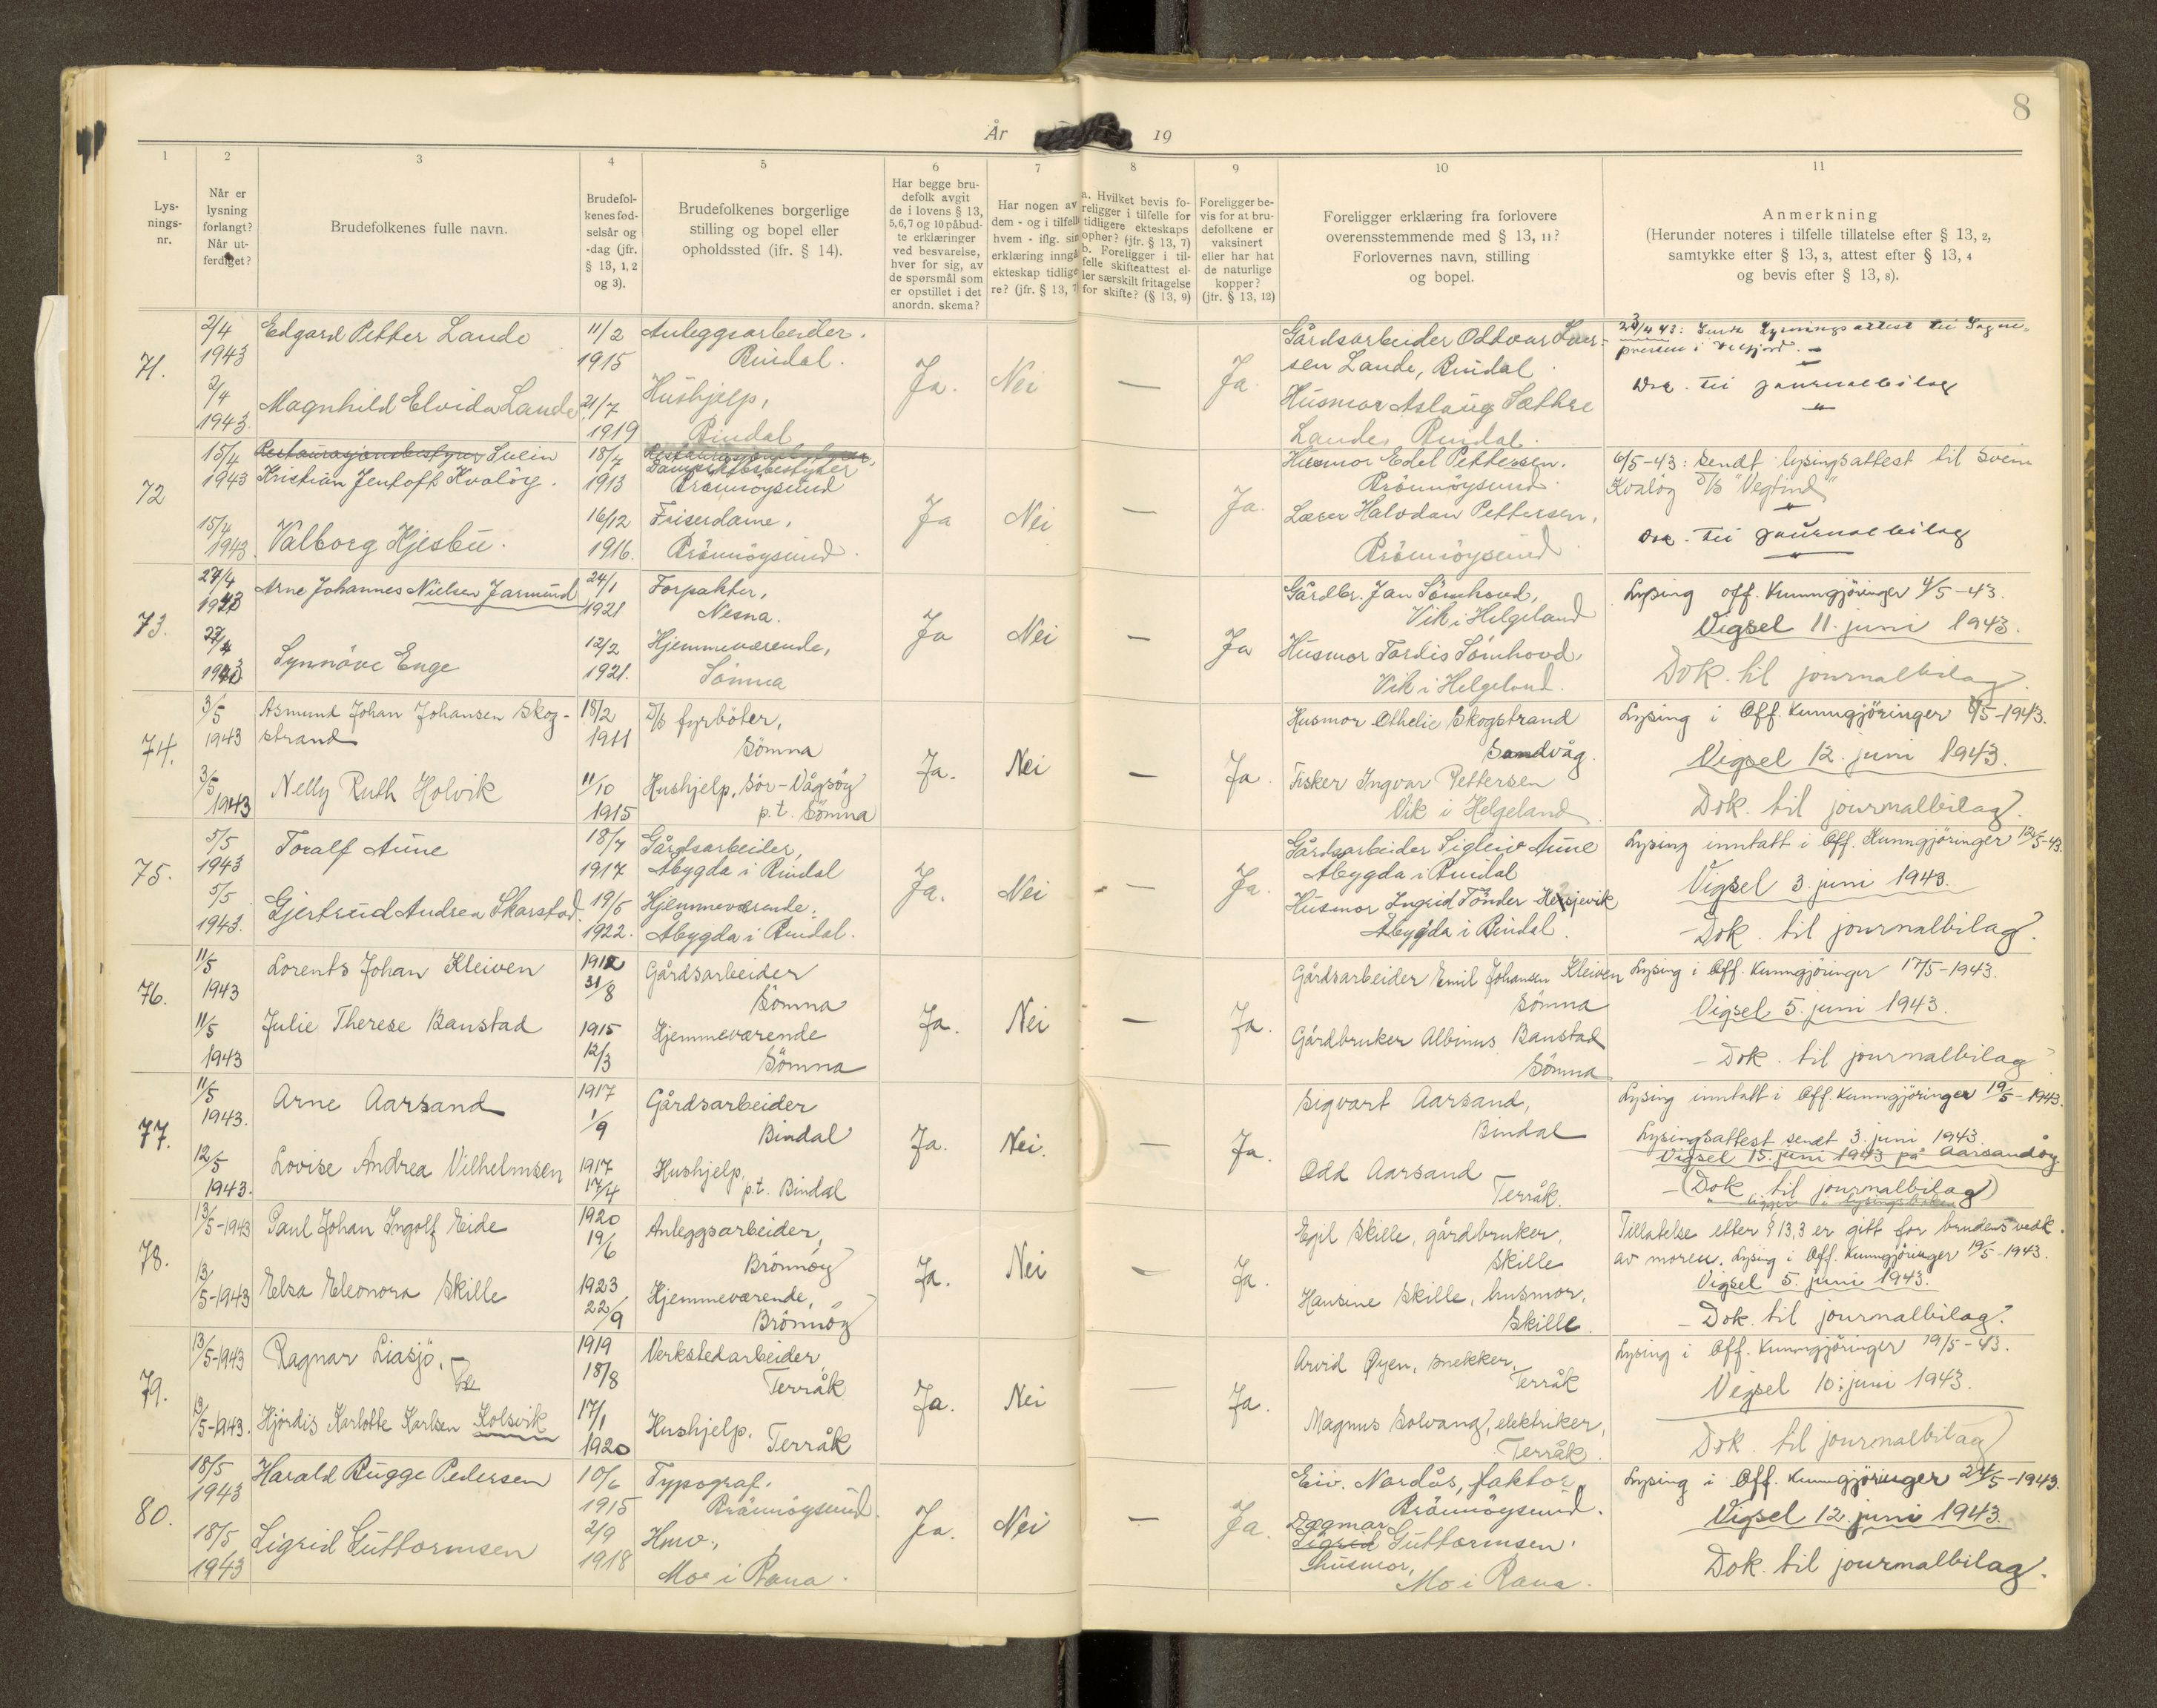 8
År 19
1 2 3 4 5 6 7 8 9 10 11
Lys-
nings-
nr.
Når er
lysning
forlangt?
Når ut-
ferdiget?
Brudefolkenes fulle navn.
Brudefol-
kenes fød-
selsår og
-dag (jfr.
§ 13, 1, 2
og 3).
Brudefolkenes borgerlige
stilling og bopel eller
opholdssted (jfr. § 14).
Har begge bru-
defolk avgit
de i lovens § 13,
5,6,7 og 10 påbud-
te erklæringer
ved besvarelse,
hver for sig, av
de spørsmål som
er opstillet i det
anordn. skema?
Har nogen av
dem - og i tilfelle
hvem - iflg. sin
erklæring inngå
ekteskap tidlige
re? (jfr. § 13, 7
a. Hvilket bevis fo-
religger i tilfelle for
tidligere ekteskaps
ophør? (jfr. § 13, 7)
b. Foreligger i til-
felle skifteattest el-
ler særskilt fritagelse
for skifte? (§ 13, 9)
Foreligger be-
vis for at bru-
defolkene er
vaksinert
eller har hat
de naturlige
kopper?
(jfr. § 13, 12)
Foreligger erklæring fra forlovere
overensstemmende med § 13, 11?
Forlovernes navn, stilling
og bopel.
Anmerkning
(Herunder noteres i tilfelle tillatelse efter § 13, 2,
samtykke efter § 13, 3, attest efter § 13, 4
og bevis efter § 13, 8).
71.
2/4
1943
Edgard Petter Lande
11/2
1915
Anleggsarbeider.
Bindal.
2/4
1943
Magnhild Elvida Lande
21/7
1919
Hushjelp,
Bindal
Ja. Nei — Ja
Gårdsarbeider Oddvar Laur-
sen Lande, Bindal.
Husmor Aslaug Sæthre
Lande, Bindal.
23/4 43: Sendt lysningsattest til Sogne-
presten i Velfjord.
Dok. til journalbilag
72
15/4
1943
Restaurasjonsbestyrer Svein
Kristian Jentoft Kvaløy.
18/7
1913
Restaurasjonsbestyrer.
Dampskibsbestyrer
Brönnöysund
15/4
1943.
Valborg Hjesbu.
16/12
1916.
Friserdame,
Brönnöysund.
Ja Nei — Ja.
Husmor Edel Pettersen.
Brönnöysund.
Lærer Halvdan Pettersen,
Brönnöysund
6/5-43: Sendt lysingsattest til Svein
Kvalöy D/S "Vegtind"
Dok. til journalbilag
73.
27/4
1943
Arne Johannes Nielsen Jarmund
24/1
1921
Forpakter,
Nesna.
27/4
1943
Synnöve Enge
12/2
1921.
Hjemmeværende,
Sömna
Ja Nei — Ja
Gårdbr. Jan Sömhovd,
Vik i Helgeland
Husmor Tordis Sömhovd,
Vik i Helgeland.
Lysing off. Kunngjöringer 4/5-43.
Vigsel 11. juni 1943.
Dok. til journalbilag.
74.
3/5
1943
Asmund Johan Johansen Skog-
strand
18/2
1911
D/S fyrböter,
Sömna
3/5
1943
Nelly Ruth Holvik
11/10
1915
Hushjelp, Sör-Vågsöy
p.t. Sömna
Ja. Nei — Ja
Husmor Othelie Skogstrand
Sandvåg.
Fisker Ingvar Pettersen
Vik i Helgeland.
Lysing i Off. Kunngjöringer 8/5-1943.
Vigsel 12. juni 1943.
Dok. til journalbilag.
75.
5/5
1943
Toralf Aune
18/7
1917
Gårdsarbeider,
Åbygda i Bindal
5/5
1943.
Gjertrud Andrea Skarstad.
19/5
1922.
Hjemmeværende.
Åbygda i Bindal.
Ja. Nei — Ja.
Gårdsarbeider Sigleiv Aune
Åbygda i Bindal
Husmor Ingrid Tönder Heisjevik
Åbygda i Bindal.
Lysing inntatt i Off. Kunngjöringer 12/5-43.
Vigsel 3. juni 1943.
- Dok. til journalbilag.
76.
11/5
1943
Lorents Johan Kleiven
1912
31/8
Gårdsarbeider
Sömna
11/5
1943
Julie Therese Banstad
1915
12/3
Hjemmeværende
Sömna
Ja. Nei — Ja.
Gårdsarbeider Emil Johansen Kleiven
Sömna
Gårdbruker Albinus Banstad
Sömna
Lysing i Off. Kunngjöringer 17/5-1943.
Vigsel 5. juni 1943.
- Dok. til journalbilag
77.
11/5
1943.
Arne Aarsand
1917
1/9
Gårdsarbeider
Bindal
12/5
1943.
Lovise Andrea Vilhelmsen
1917
17/4
Hushjelp,
p.t. Bindal
Ja. Nei. — Ja.
Sigvart Aarsand,
Bindal
Odd Aarsand —
Terråk.
Lysing inntatt i Off. Kunngjöringer 19/5-1943.
Lysingsattest sendt 3. juni 1943.
Vigsel 15. juni 1943 på Aarsandöy
- (Dok. til journalbilag)
78.
13/5-1943
Paul Johan Ingolf Eide
1920
19/6
Anleggsarbeider,
Brönnöy
13/5-1943
Elsa Eleonora Skille
1923
22/9
Hjemmeværende,
Brönnöy
Ja. Nei — Ja.
Egil Skille, gårdbruker,
Skille
Hansine Skille, husmor,
Skille.
Tillatelse etter § 13,3 er gitt for brudens vedk.
av moren. Lysing i Off. Kunngjöringer 19/5-1943.
Vigsel 5. juni 1943.
- Dok. til journalbilag.
79.
13/5-1943
Ragnar Liasjö.
1919
18/8
Verkstedarbeider,
Terråk
13/5-1943.
Hjördis Karlotte Karlsen Kolsvik
17/1
1920
Hushjelp.
Terråk
Ja. Nei — Ja.
Arvid Øyen, snekker,
Terråk
Magnus Solvang, elektriker,
Terråk.
Lysing i Off. Kunngjöringer 19/5-43.
Vigsel 10. juni 1943.
Dok. til journalbilag
80.
18/5
1943
Harald Bugge Pedersen
10/6
1915
Typograf.
Brönnöysund.
18/5
1943
Sigrid Guttormsen
2/9
1918
Hmv.,
Mo i Rana.
Ja. Nei — Ja.
Eiv. Nordås, faktor,
Brönnöysund.
Dagmar
Sigrid Guttormsen.
husmor,
Mo i Rana.
Lysing i Off. Kunngjöringer 24/5-1943.
Vigsel 12. juni 1943.
Dok. til journalbilag.